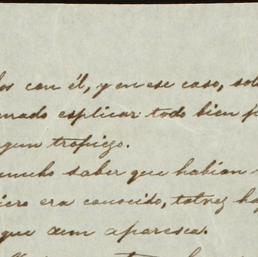 los con él, y en ese caso, sol
mado explicar todo bien p
gun tropiezo.
mucho saber que habian
iero era conocido, talvez ha
que aun aparesca.